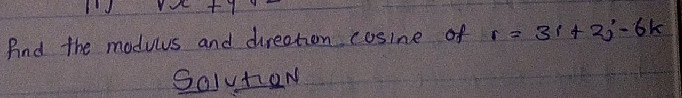 find the modulus and direction cosine of r = 3i + 2j - 6k
Solution